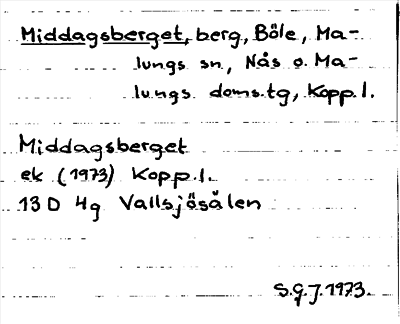 Middagsberget, berg, Böle, Ma-
lungs sn., Nås o. Ma-
lungs doms.tg, Kopp.l.
Middagsberget
ek (1973) Kopp.l.
13D 4g Vallsjösälen
S.G.J. 1973.